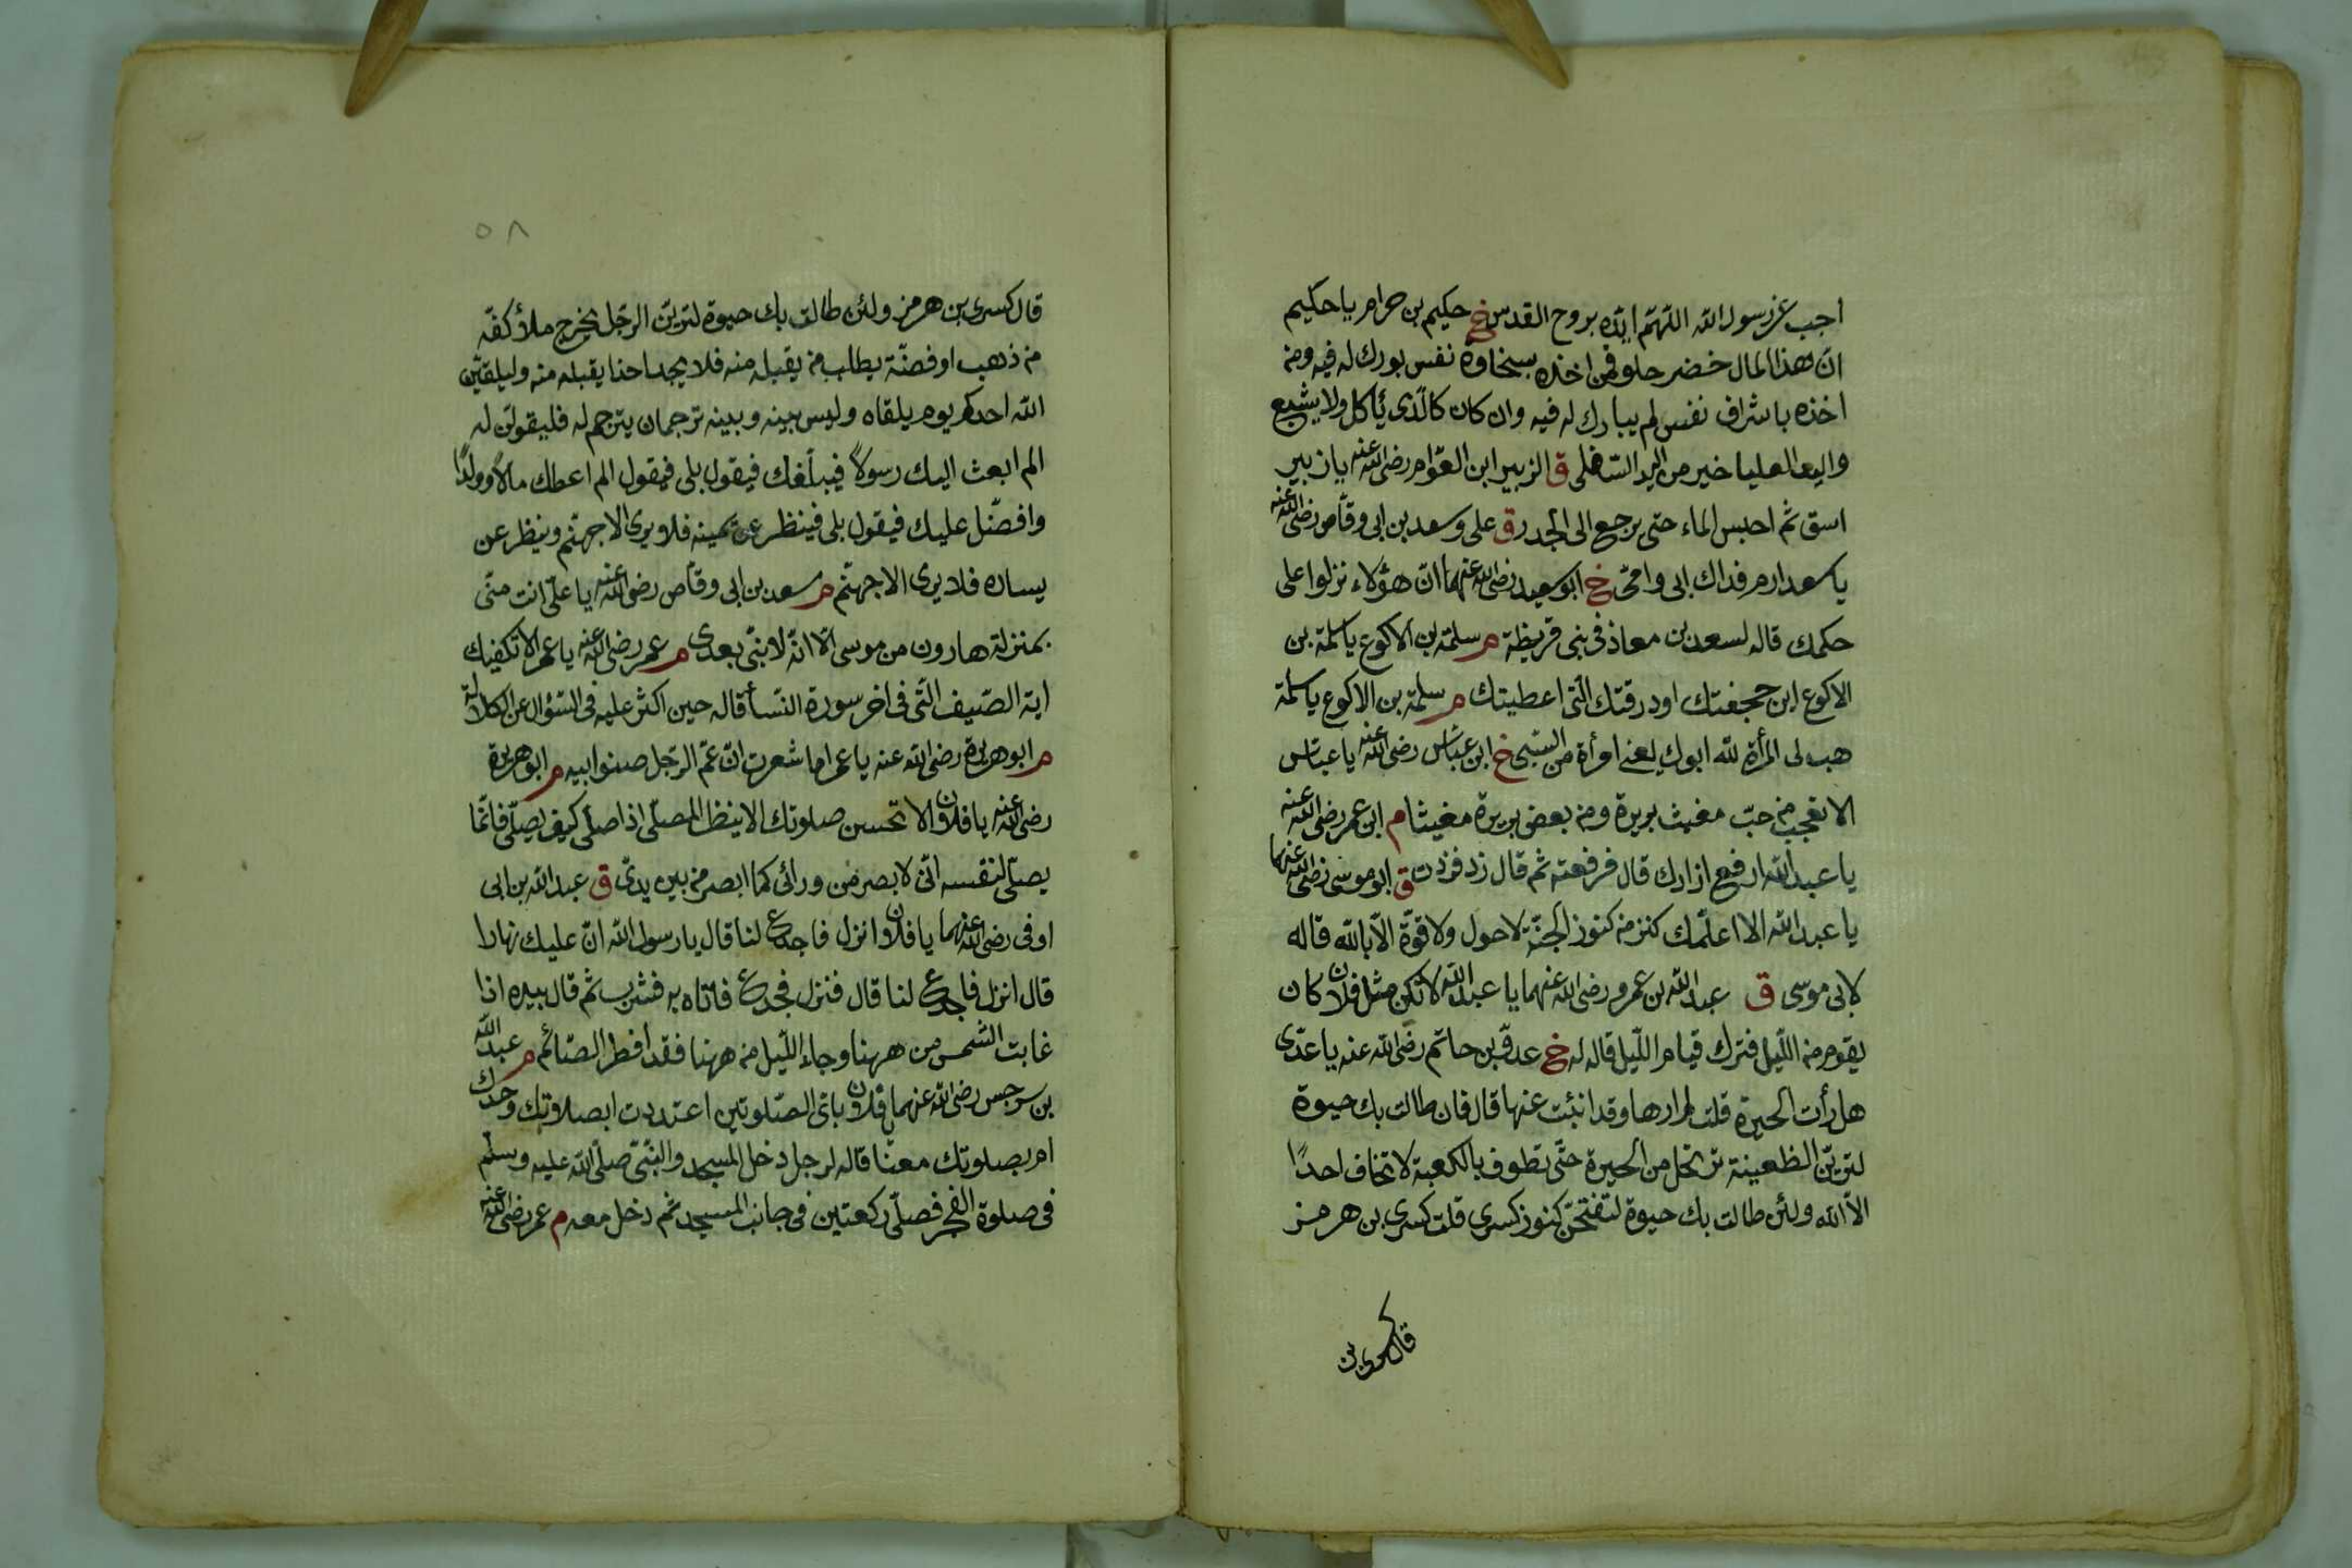 اجب عن رسول الله اللهم ايده بروح القدس خ حكيم بن حرام يا حكيم
ان هذا المال خضر حلو فمن اخذه بسخاوة نفس بورك له فيه ومن
اخذه باشراف نفس لم يبارك له فيه وان كان كالذى يأكل ولا يشبع
واليد العليا خير من اليد السفلى ق الزبير ابن العوام رضى الله عنه يا زبير
اسق ثم احبس الماء حتى يرجع الى الجدر ق على وسعد بن ابى وقاص رضى الله عنه
يا سعد ارم فداك ابى وامى خ ابو سعيد رضى الله عنهما ان هؤلاء نزلوا على
حكمك قاله لسعد بن معاذ فى بنى قريظة م سلمة بن الاكوع يا سلمة بن
الاكوع اين حجفتك او درقتك التى اعطيتك م سلمة بن الاكوع يا سلمة
هب لى المرأة لله ابوك يعنى امرأة من السبى خ ابن عباس رضى الله عنه يا عباس
الا تعجب من حب مغيث بريرة ومن بعض بريرة مغيثا م ابن عمر رضى الله عنه
يا عبد الله ارفع ازارك قال فرفعته ثم قال زد فزدت ق ابو موسى رضى الله عنهما
يا عبد الله الا اعلمك كنز من كنوز الجنة لا حول ولا قوة الا بالله قاله
لابى موسى ق عبد الله بن عمرو رضى الله عنهما يا عبد الله لا تكن مثل فلان كان
يقوم من الليل فترك قيام الليل قاله له خ عدى بن حاتم رضى الله عنه يا عدى
هل رأت الحيرة قلت لم ارها وقد انبئت عنها قال فان طالت بك حيوة
لترين الظعينة ترتحل من الحيرة حتى تطوف بالكعبة لا تخاف احدًا
الا الله ولئن طالت بك حيوة لتفتحن كنوز كسرى قلت كسرى بن هرمز
قال كسرى بن
٥٨
قال كسرى بن هرمز ولئن طالت بك حيوة لترين الرجل يخرج ملأ كفه
من ذهب او فضة يطلب من يقبله منه فلا يجد احدا يقبله منه وليلقين
الله احدكم يوم يلقاه وليس بينه وبينه ترجمان يترجم له فليقولن له
الم ابعث اليك رسولاً فيبلغك فيقول بلى فيقول الم اعطك مالاً وولدًا
وافضل عليك فيقول بلى فينظر عن يمينه فلا يرى الا جهنم وينظر عن
يساره فلا يرى الا جهنم م سعد بن ابى وقاص رضى الله عنه يا على انت منى
بمنزلة هارون من موسى الا انه لا نبى بعدى م عمر رضى الله عنه يا عمر الا تكفيك
اية الصيف التى فى اخر سورة النسأ قاله حين اكثر عليه فى السؤال عن الكلالة
م ابو هريرة رضى الله عنه يا عمر اما شعرت ان عم الرجل صنو ابيه م ابو هريرة
رضى الله عنه يا فلان الا تحسن صلوتك الا ينظر المصلى اذا صلى كيف يصلى فانما
يصلى لنفسه انى لا بصر من ورائى كما ابصر من بين يدى ق عبد الله بن ابى
اوفى رضى الله عنهما يا فلان انزل فاجدع لنا قال يا رسول الله ان عليك نهارا
قال انزل فاجدع لنا قال فنزل فجدع فاتاه به فشرب ثم قال بيده اذا
غابت الشمس من ههنا وجاء الليل من ههنا فقد افطر الصائم م عبد الله
بن سرجس رضى الله عنهما يا فلان باى الصلوتين اعتددت ابصلاوتك وحدك
ام بصلوتك معنا قاله لرجل دخل المسجد والنبى صلى الله عليه وسلم
فى صلوة الفجر فصلى ركعتين فى جانب المسجد ثم دخل معه م عمر رضى الله عنه